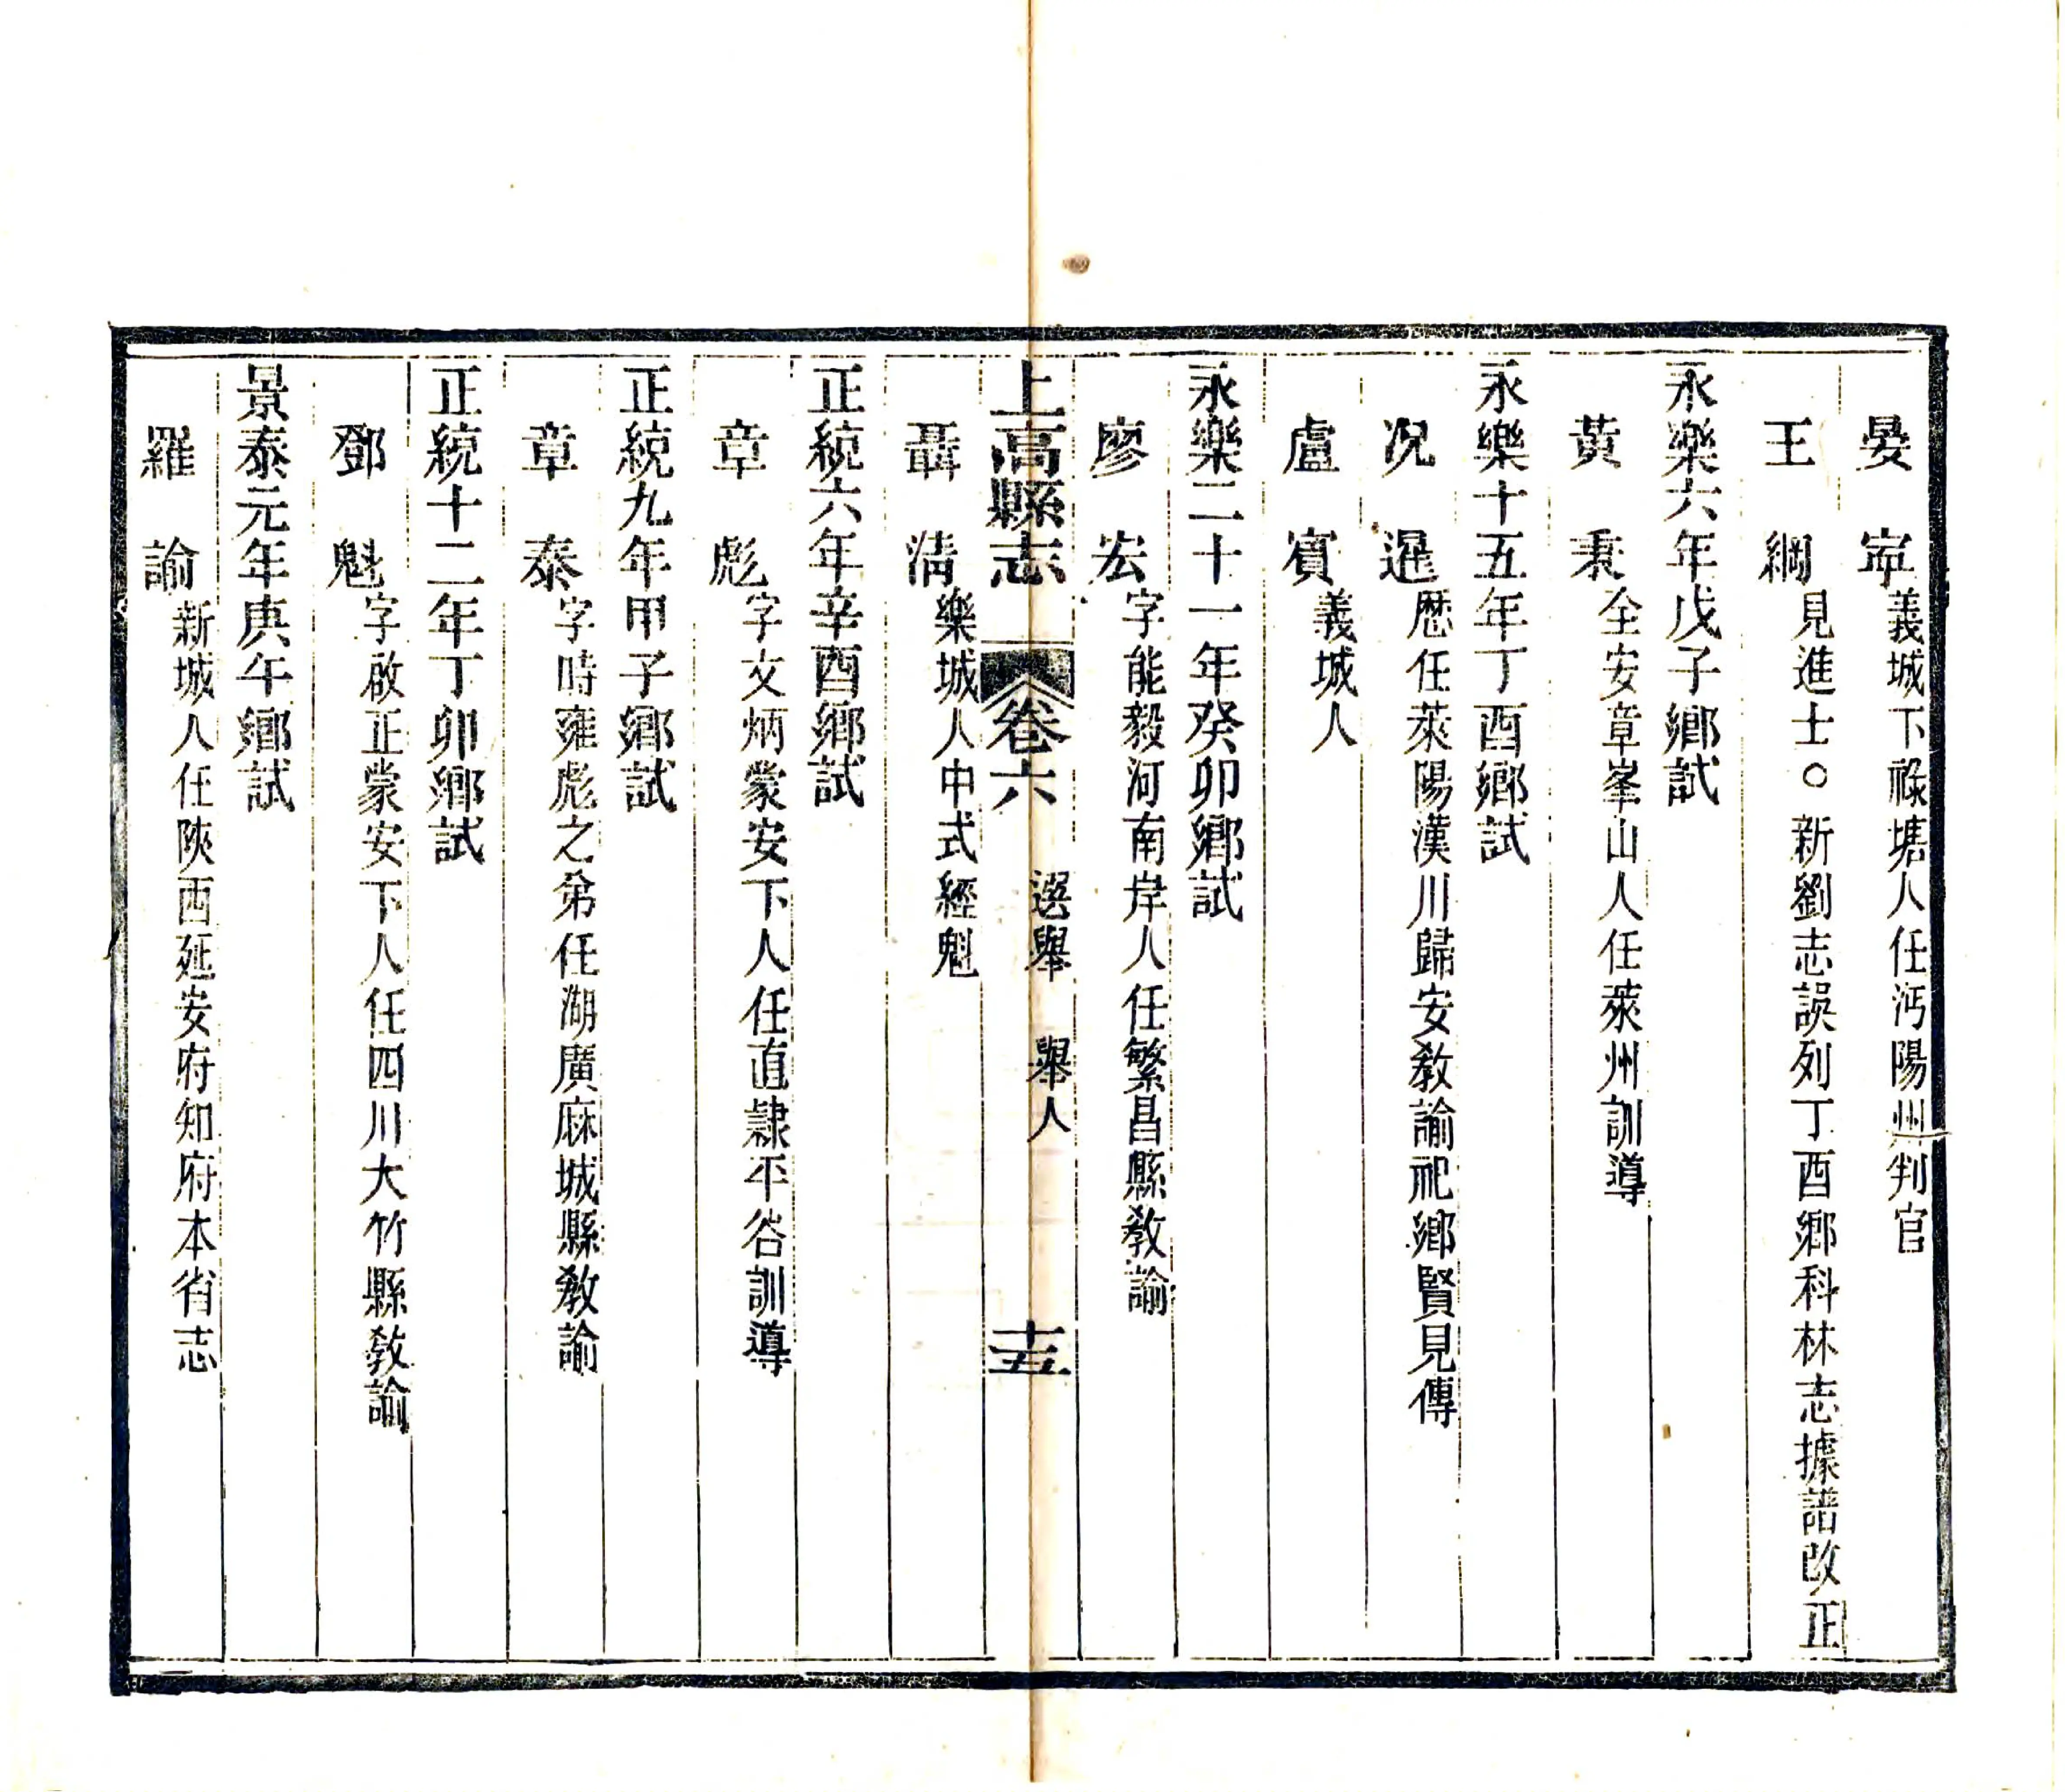 晏　寍義城下祿塘人任沔陽州判官
王　綱見進士○新劉志誤列丁酉鄉科林志據譜改正
永樂六年戊子鄉試
黃　秉全安章峯山人任萊州訓導
永樂十五年丁酉鄉試
况　暹歷任萊陽漢川歸安教諭祀鄉賢見傳
盧　賓義城人
永樂二十一年癸卯鄉試
廖　宏字能毅河南岸人任繁昌縣教諭
上高縣志　卷六　選舉　舉人　十五
聶　清樂城人中式經魁
正統六年辛酉鄉試
章　彪字文炳蒙安下人任直隷平谷訓導
正統九年甲子鄉試
章　泰字時雍彪之弟任湖廣麻城縣教諭
正統十二年丁卯鄉試
鄧　魁字啟正蒙安下人任四川大竹縣教諭
景泰元年庚午鄉試
羅　諭新城人任陝西延安府知府本省志